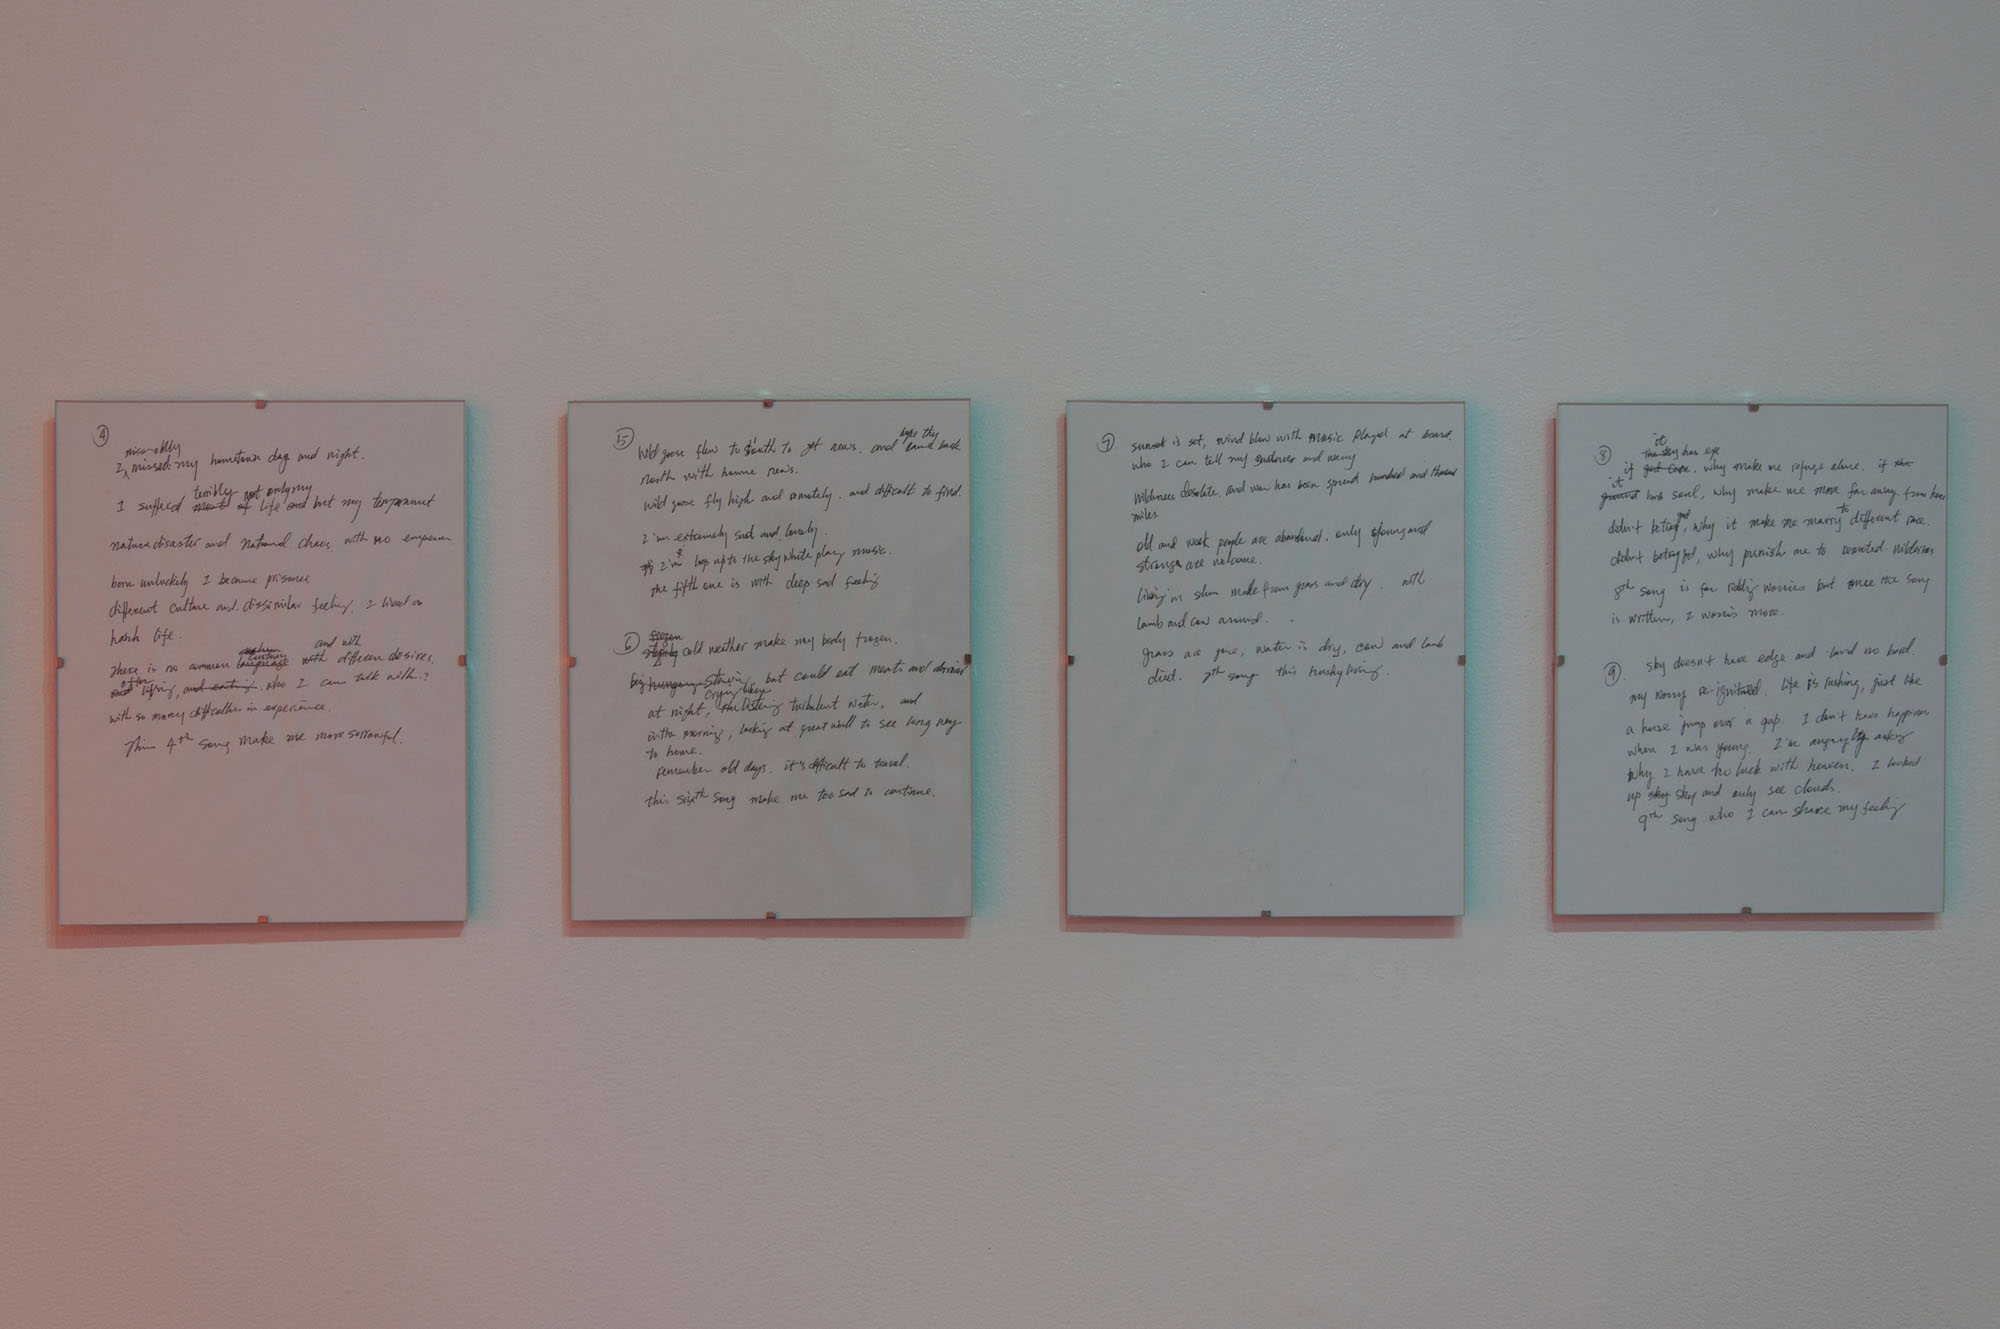 ④
miserably
I missed my hometown day and night.
terribly not only my
I suffered life and but my
nature disaster and national chaos, with no
born unluckily I became prisoner
different culture and dissimilar feeling. I lived a
harsh life.
custom and with
There is no common language with different desires.
living, and eating. who I can talk with?
with so many difficulties in experience.
This 4th song make me more sorrowful.
5
wild goose flew to south to get news. and back
north with home news.
wild goose fly high and remotely. and difficult to find.
I'm extremely sad and lonely.
I'm up to the sky while play music.
the fifth one is with deep sad feeling
⑥
frozen
cold weather make my body frozen.
starving, but could eat meats and
at night, listening turbulent water, and
in the morning, looking at great wall to see long way
to home.
remember old days. it's difficult to travel.
this sixth song make me too sad to continue.
⑦
sunset is set, wind blow with music played at board.
who I can tell my and worry
wilderness desolate, and war has been spread hundred and thousand
miles.
old and weak people are abandoned. only young and
strong are welcome.
living in make from grass and dry. with
lamb and cow around.
grass are gone, water is dry, cow and lamb
died. 7th song this living.
⑧
it
the sky has eye
if god care, why make me refuge alone. if the
it
ground has soul, why make me move far away from home
god
didn't betray, why it make me marry to different race.
didn't betray god, why punish me to remoted wilderness
8th song is for worries but once the song
is written, I worries more.
⑨
sky doesn't have edge and land no
my worry re-ignitued. Life is rushing, just like
a horse jump over a gap. I don't have happiness
when I was young. I'm angrily asking
why I have no luck with heaven. I looked
up sky sky and only see clouds.
9th song who I can share my feeling